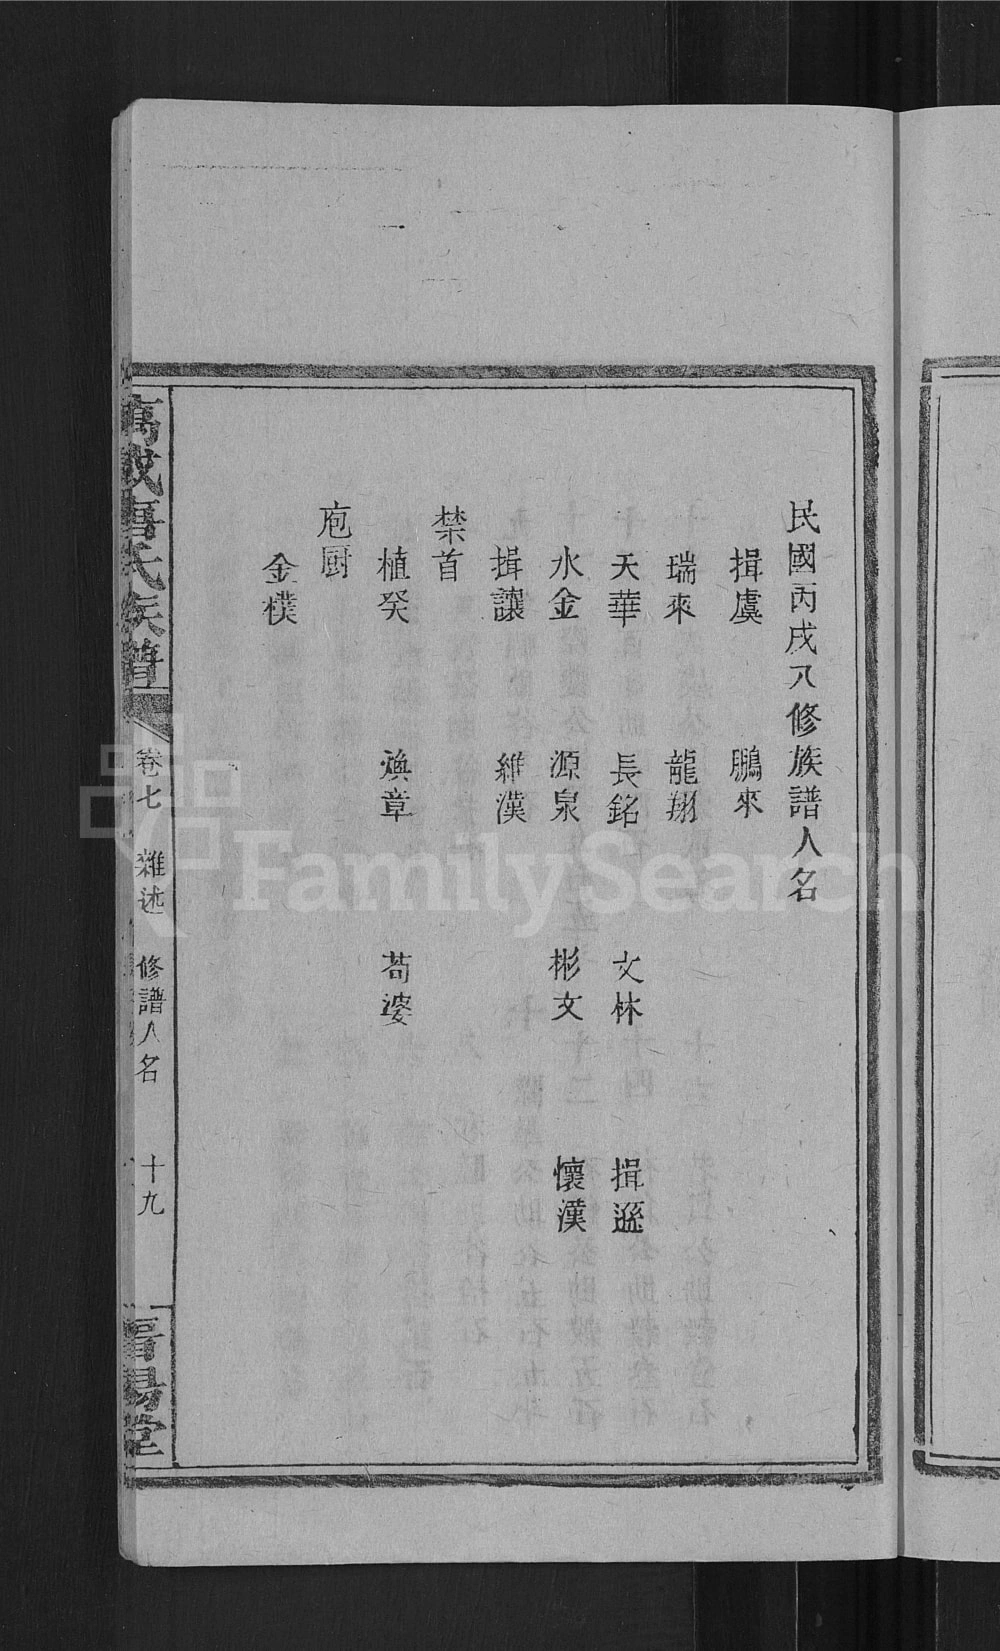 民國丙戌八修族譜人名
揖虞 鵬來
瑞來 龍翔
天華 長銘 文林 揖遜
水金 源泉 彬文 懷漢
揖讓 維漢
禁首
植癸 煥章 苟婆
庖厨
金樸
唐氏族譜
卷七 雜述 修譜人名 十九
晉陽堂
FamilySearch